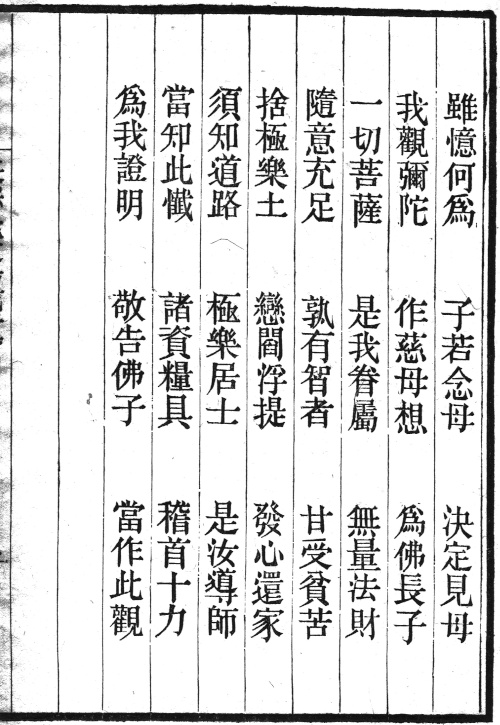 雖憶何爲　子若念母　決定見母
我觀彌陀　作慈母想　爲佛長子
一切菩薩　是我眷屬　無量法財
隨意充足　孰有智者　甘受貧苦
捨極樂土　戀閻浮提　發心還家
須知道路　極樂居士　是汝導師
當知此懺　諸資糧具　稽首十力
爲我證明　敬告佛子　當作此觀